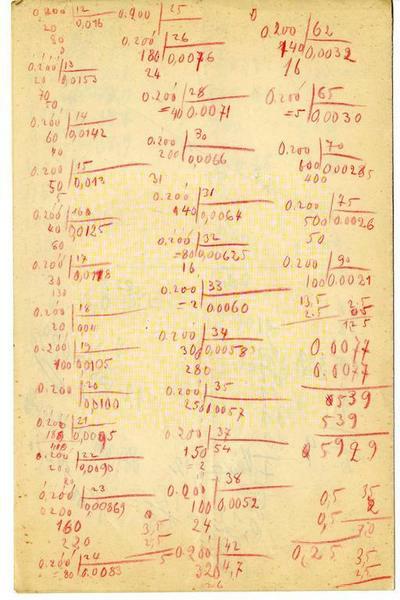 0.200 12
20 0,016
80
0
0.200 13
20 0,0153
70
50
0.200 14
60 0,0142
40
0.200 15
50 0,013
5
0.200 160
40 0,0125
80
0.200 17
30 0,0118
130
0.200 18
20 0,011
0.200 19
100 0,0105
0.200 20
0,0100
0.200 21
0,0095
0.200 22
200 0,0090
0.200 23
0,00869
160
220
0.200 24
80 0.0083
0.200 25
0.200 26
180 0,0076
24
0.200 28
=40 0.0071
0.200 30
200 0,0066
31
0.200 31
140 0,0064
0.200 32
=80 0,00625
16
0.200 33
=2 0.0060
0.200 34
300 0,0058
280
0.200 35
250 0,0057
0.200 37
150 54
=2
0.200 38
100 0.0052
24
3,5
2,5
5
0.200 42
320 4,7
26
0.200 62
140 0,0032
16
0.200 65
=5 0.0030
0.200 70
600 0.00285
400
0.200 75
500 0.0026
50
0.200 90
100 0.0021
13,5
2.5
2.5
0.5
12 5
0.0077
0.0077
0539
539
05929
0,5
0,5
0,25
35
2
70
3,5
2,5